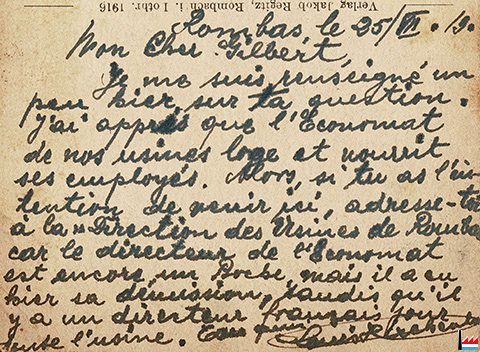 Verlag Jakob Regitz, Rombach i. Lothr. 1916
Rombas, le 25/VI.19.
Mon Cher Gilbert,
Je me suis renseigné un
peu hier sur ta question.
J'ai appris que l'Economat
de nos usines loge et nourrit
ses employés. Alors, si tu as l'in-
tention de venir ici, adresse-toi
à la "Direction des Usines de Rombas
car le directeur de l'Economat
est encore un Boche mais il a eu
hier sa démission, tandis qu'il
y a un directeur français pour
toute l'usine.